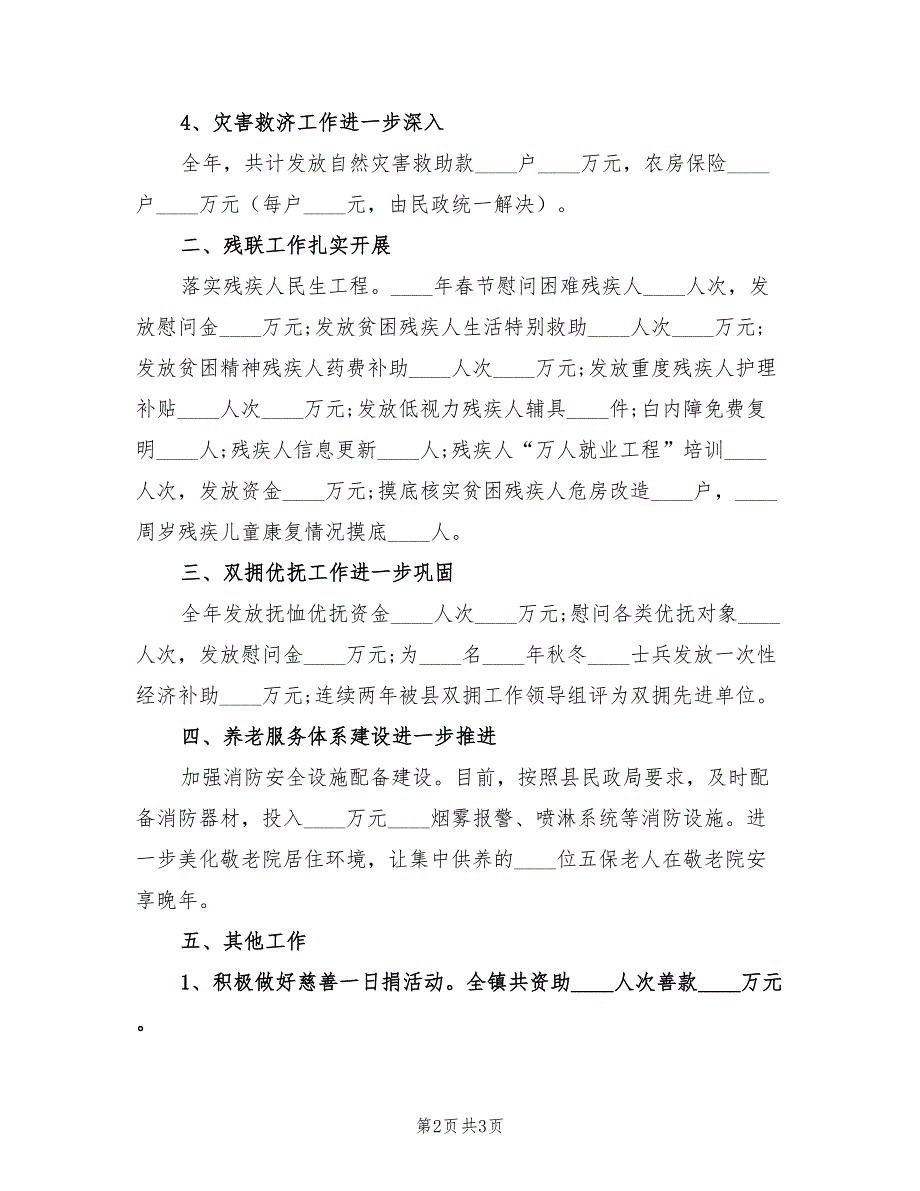 4、灾害救济工作进一步深入
全年，共计发放自然灾害救助款____户____万元，农房保险____
户____万元（每户____元，由民政统一解决）。
二、残联工作扎实开展
落实残疾人民生工程。____年春节慰问困难残疾人____人次，发
放慰问金____万元;发放贫困残疾人生活特别救助____人次____万元;
发放贫困精神残疾人药费补助____人次____万元;发放重度残疾人护理
补贴____人次____万元;发放低视力残疾人辅具____件;白内障免费复
明____人;残疾人信息更新____人;残疾人“万人就业工程”培训____
人次，发放资金____万元;摸底核实贫困残疾人危房改造____户，____
周岁残疾儿童康复情况摸底____人。
三、双拥优抚工作进一步巩固
全年发放抚恤优抚资金____人次____万元;慰问各类优抚对象____
人次，发放慰问金____万元;为____名____年秋冬____士兵发放一次性
经济补助____万元;连续两年被县双拥工作领导组评为双拥先进单位。
四、养老服务体系建设进一步推进
加强消防安全设施配备建设。目前，按照县民政局要求，及时配
备消防器材，投入____万元____烟雾报警、喷淋系统等消防设施。进
一步美化敬老院居住环境，让集中供养的____位五保老人在敬老院安
享晚年。
五、其他工作
1、积极做好慈善一日捐活动。全镇共资助____人次善款____万元
。
第2页 共3页